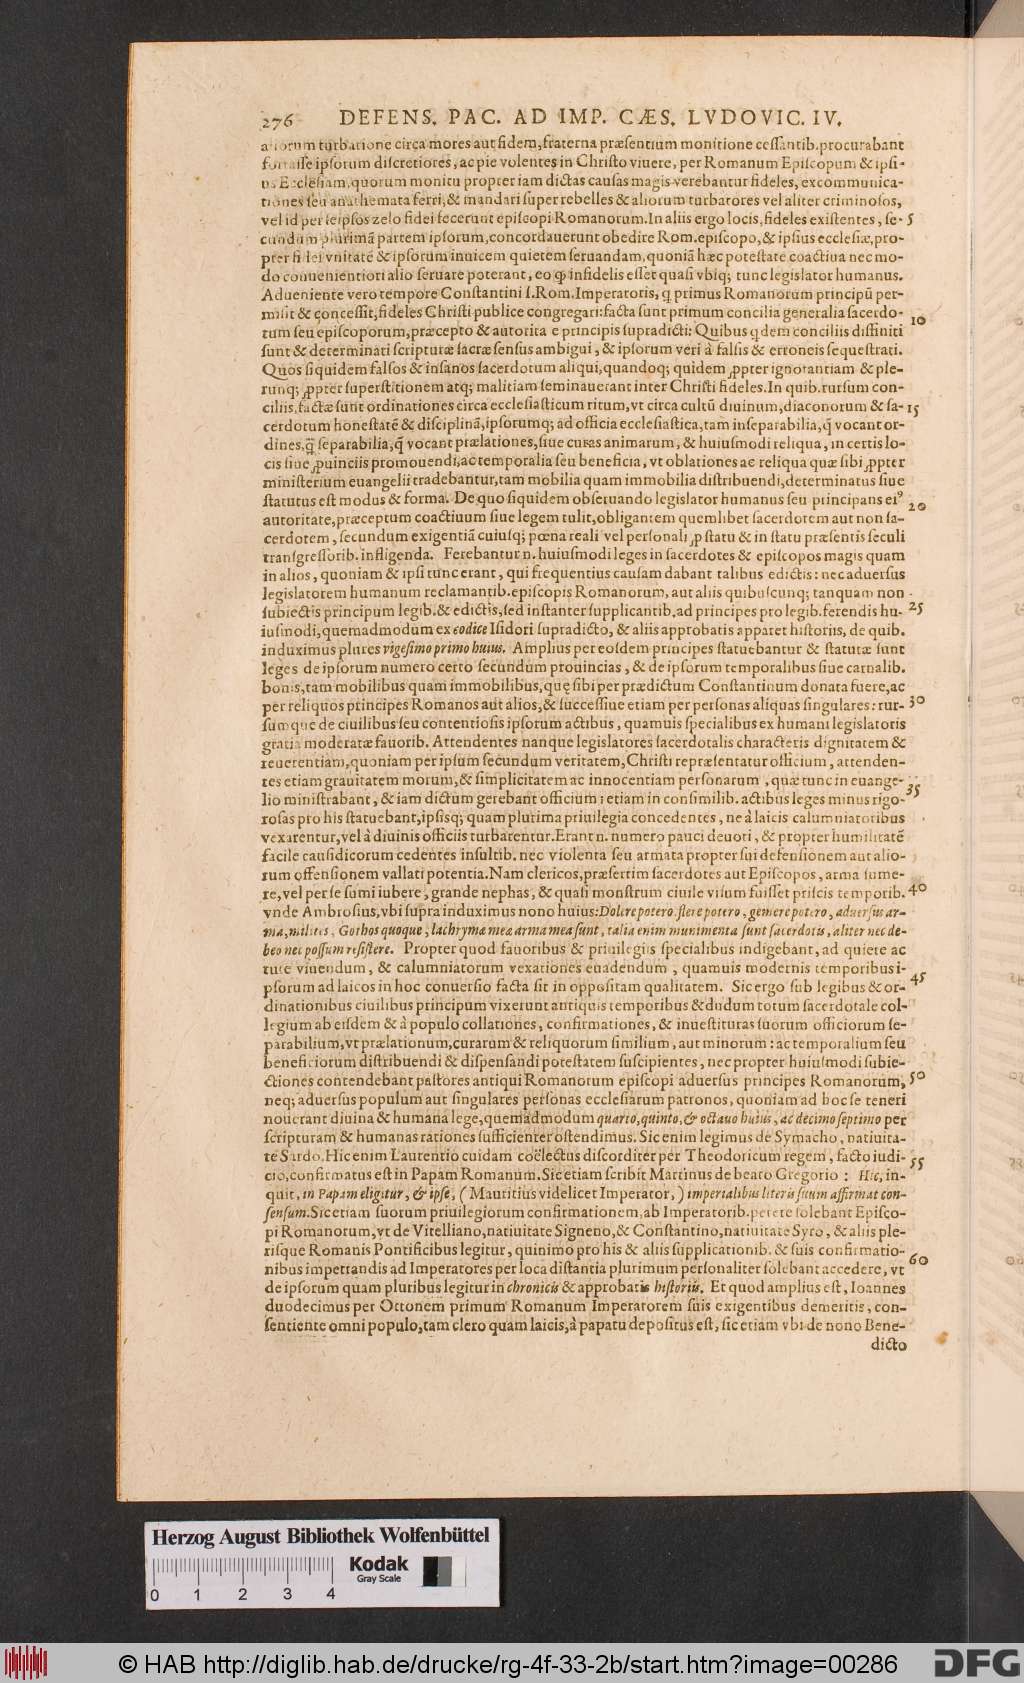 276 DEFENS. PAC. AD IMP. CÆS. LVDOVIC. IV.
aliorum turbatione circa mores aut fidem, fraterna præsentium monitione cessantib. procurabant
forasse ipsorum discretiores, ac pie volentes in Christo viuere, per Romanum Episcopum & ipsi-
us Ecclesiam, quorum monitu propter iam dictas causas magis verebantur fideles, excommunica-
tiones seu anathemata ferri, & mandari super rebelles & aliorum turbatores vel aliter criminosos,
vel id per seipsos zelo fidei fecerunt episcopi Romanorum. In aliis ergo locis, fideles existentes, se- 5
cundum plurimã partem ipsorum, concordauerunt obedire Rom. episcopo, & ipsius ecclesiæ, pro-
pter fidei vnitatẽ & ipsorum inuicem quietem seruandam, quoniã hæc potestate coactiua nec mo-
do conuenientiori alio seruare poterant, eo ꝙ infidelis esset quasi vbiq; tunc legislator humanus.
Adueniente vero tempore Constantini s. Rom. Imperatoris, q primus Romanorum principũ per-
misit & concessit, fideles Christi publice congregari: facta sunt primum concilia generalia sacerdo- 10
tum seu episcoporum, præcepto & autorita e principis supradicti: Quibus qdem conciliis diffiniti
sunt & determinati scripturæ sacræ sensus ambigui, & ipsorum veri à falsis & erroneis sequestrati.
Quos siquidem falsos & insanos sacerdotum aliqui, quandoq; quidem ꝓpter ignorantiam & ple-
runq; ꝓpter superstitionem atq; malitiam seminauerant inter Christi fideles. In quib. rursum con-
ciliis, factæ sunt ordinationes circa ecclesiasticum ritum, vt circa cultũ diuinum, diaconorum & sa- 15
cerdotum honestatẽ & disciplinã, ipsorumq; ad officia ecclesiastica, tam inseparabilia, q̃ vocant or-
dines, q̃ separabilia, q̃ vocant prælationes, siue curas animarum, & huiusmodi reliqua, in certis lo-
cis siue ꝓuinciis promouendi, ac temporalia seu beneficia, vt oblationes ac reliqua quæ sibi ꝓpter
ministerium euangelii tradebantur, tam mobilia quam immobilia distribuendi, determinatus siue
statutus est modus & forma. De quo siquidem obseruando legislator humanus seu principans eiꝰ 20
autoritate, præceptum coactiuum siue legem tulit, obligantem quemlibet sacerdotem aut non sa-
cerdotem, secundum exigentiã cuiusq; pœna reali vel personali ꝓ statu & in statu præsentis seculi
transgressorib. infligenda. Ferebantur n. huiusmodi leges in sacerdotes & episcopos magis quam
in alios, quoniam & ipsi tunc erant, qui frequentius causam dabant talibus edictis: nec aduersus
legislatorem humanum reclamantib. episcopis Romanorum, aut aliis quibuscunq; tanquam non
subiectis principum legib. & edictis, sed instanter supplicantib. ad principes pro legib. ferendis hu- 25
iusmodi, quemadmodum ex codice Isidori supradicto, & aliis approbatis apparet historiis, de quib.
induximus plures vigesimo primo huius. Amplius per eosdem principes statuebantur & statutæ sunt
leges de ipsorum numero certo secundum prouincias, & de ipsorum temporalibus siue carnalib.
bonis, tam mobilibus quam immobilibus, quę sibi per prædictum Constantinum donata fuere, ac
per reliquos principes Romanos aut alios, & successiue etiam per personas aliquas singulares: rur- 30
sumque de ciuilibus seu contentiosis ipsorum actibus, quamuis specialibus ex humani legislatoris
gratia moderatæ fauorib. Attendentes nanque legislatores sacerdotalis characteris dignitatem &
reuerentiam, quoniam per ipsum secundum veritatem, Christi repræsentatur officium, attenden-
tes etiam grauitatem morum, & simplicitatem ac innocentiam personarum, quæ tunc in euange-
lio ministrabant, & iam dictum gerebant officium: etiam in consimilib. actibus leges minus rigo- 35
rosas pro his statuebant, ipsisq; quam plurima priuilegia concedentes, ne à laicis calumniatoribus
vexarentur, vel à diuinis officiis turbarentur. Erant n. numero pauci deuoti, & propter humilitatẽ
facile causidicorum cedentes insultib. nec violenta seu armata propter sui defensionem aut alio-
rum offensionem vallati potentia. Nam clericos, præsertim sacerdotes aut Episcopos, arma sume-
re, vel per se sumi iubere, grande nephas, & quasi monstrum ciuile visum fuisset priscis temporib. 40
vnde Ambrosius, vbi supra induximus nono huius: Dolere potero, flere potero, gemere potero, aduersus ar-
ma, milites, Gothos quoque, lachryma mea arma mea sunt, talia enim munimenta sunt sacerdotis, aliter nec de-
beo nec possum resistere. Propter quod fauoribus & priuilegiis specialibus indigebant, ad quiete ac
tute viuendum, & calumniatorum vexationes euadendum, quamuis modernis temporibus i-
psorum ad laicos in hoc conuersio facta sit in oppositam qualitatem. Sic ergo sub legibus & or- 45
dinationibus ciuilibus principum vixerunt antiquis temporibus & dudum totum sacerdotale col-
legium ab eisdem & à populo collationes, confirmationes, & inuestituras suorum officiorum se-
parabilium, vt prælationum, curarum & reliquorum similium, aut minorum: ac temporalium seu
beneficiorum distribuendi & dispensandi potestatem suscipientes, nec propter huiusmodi subie-
ctiones contendebant pastores antiqui Romanorum episcopi aduersus principes Romanorum, 50
neq; aduersus populum aut singulares personas ecclesiarum patronos, quoniam ad hoc se teneri
nouerant diuina & humana lege, quemadmodum quarto, quinto, & octauo huius, ac decimo septimo per
scripturam & humanas rationes sufficienter ostendimus. Sic enim legimus de Symacho, natiuita-
te Surdo. Hic enim Laurentio cuidam coëlectus discorditer per Theodoricum regem, facto iudi- 55
cio, confirmatus est in Papam Romanum. Sic etiam scribit Martinus de beato Gregorio: Hic, in-
quit, in Papam eligitur, & ipse, (Mauritius videlicet Imperator,) imperialibus literis suum affirmat con-
sensum. Sic etiam suorum priuilegiorum confirmationem, ab Imperatorib. petere solebant Episco-
pi Romanorum, vt de Vitelliano, natiuitate Signeno, & Constantino, natiuitate Syro, & aliis ple-
risque Romanis Pontificibus legitur, quinimo pro his & aliis supplicationib. & suis confirmatio-
nibus impetrandis ad Imperatores per loca distantia plurimum personaliter solebant accedere, vt 60
de ipsorum quam pluribus legitur in chronicis & approbatis historiis. Et quod amplius est, Ioannes
duodecimus per Ottonem primum Romanum Imperatorem suis exigentibus demeritis, con-
sentiente omni populo, tam clero quam laicis, à papatu depositus est, sic etiam vbi de nono Bene-
dicto
Herzog August Bibliothek Wolfenbüttel
Kodak
Gray Scale
0 1 2 3 4
© HAB http://diglib.hab.de/drucke/rg-4f-33-2b/start.htm?image=00286
DFG